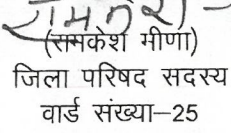 (रामकेश मीणा)
जिला परिषद सदस्य
वार्ड संख्या–25